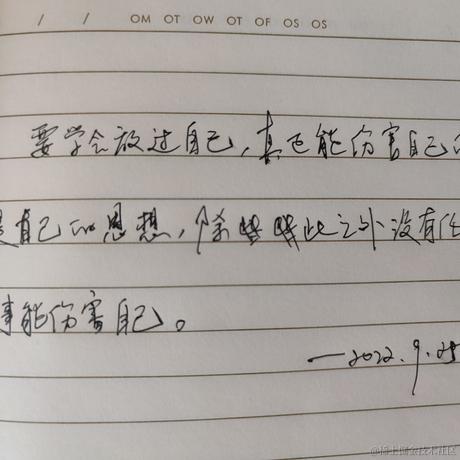 / / OM OT OW OT OF OS OS
要学会放过自己,真正能伤害自己的
是自己的思想,除此之外没有任
事能伤害自己。
—2022.9.25
@稀土掘金技术社区